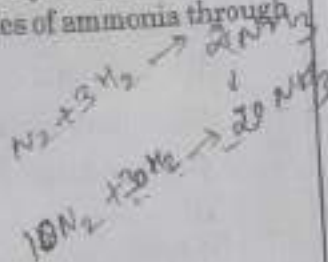 es of ammonia through
N₂ + 3H₂ → 2NH₃
↓
10N₂ + 30H₂ → 20 NH₃